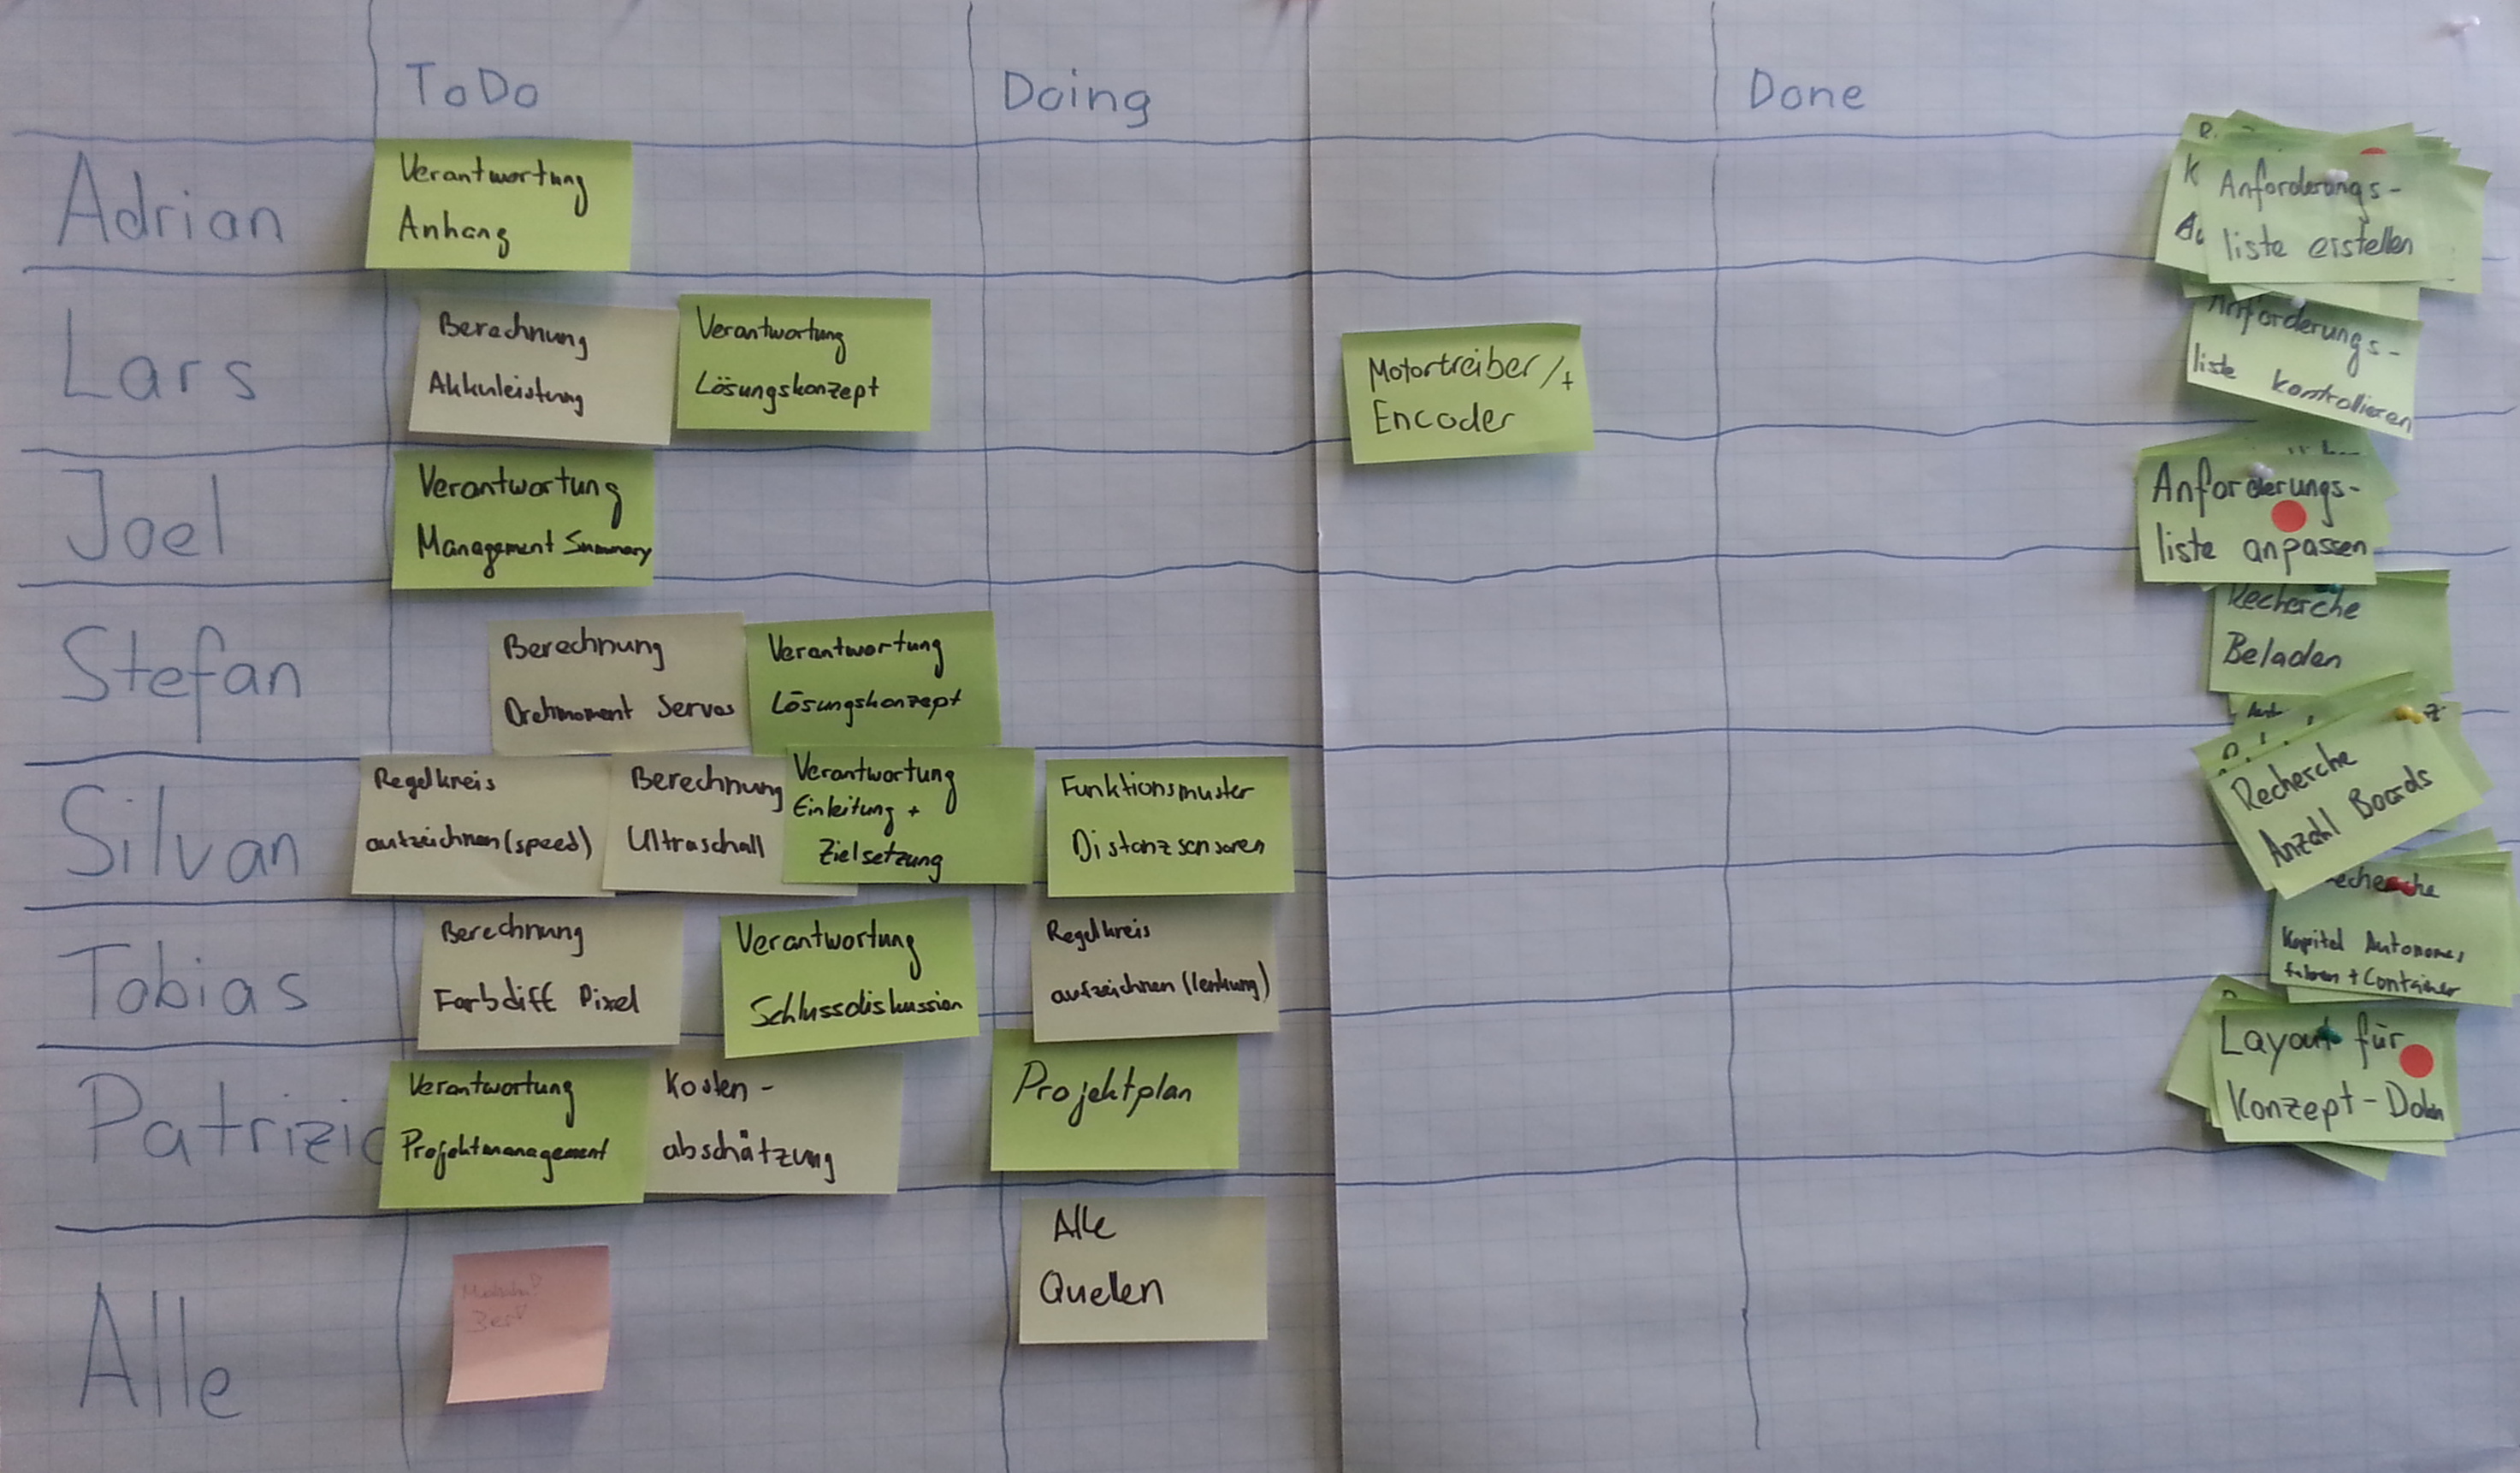 ToDo
Doing
Done
Adrian
Verantwortung
Anhang
Anforderungs-
liste erstellen
Lars
Berechnung
Akkuleistung
Verantwortung
Lösungskonzept
Motortreiber/+
Encoder
Anforderungs-
liste kontrollieren
Joel
Verantwortung
Management Summary
Anforderungs-
liste anpassen
Stefan
Berechnung
Drehmoment Servos
Verantwortung
Lösungskonzept
Recherche
Beladen
Silvan
Regelkreis
aufzeichnen (speed)
Berechnung
Ultraschall
Verantwortung
Einleitung +
Zielsetzung
Funktionsmuster
Distanzsensoren
Recherche
Anzahl Boards
Tobias
Berechnung
Farbdiff Pixel
Verantwortung
Schlussdiskussion
Regelkreis
aufzeichnen (lenkung)
echerche
Kapitel Autonomes
fahren + Container
Patrizi
Verantwortung
Projektmanagement
Kosten-
abschätzung
Projektplan
Layout für
Konzept-Dokin
Alle
Alle
Quellen